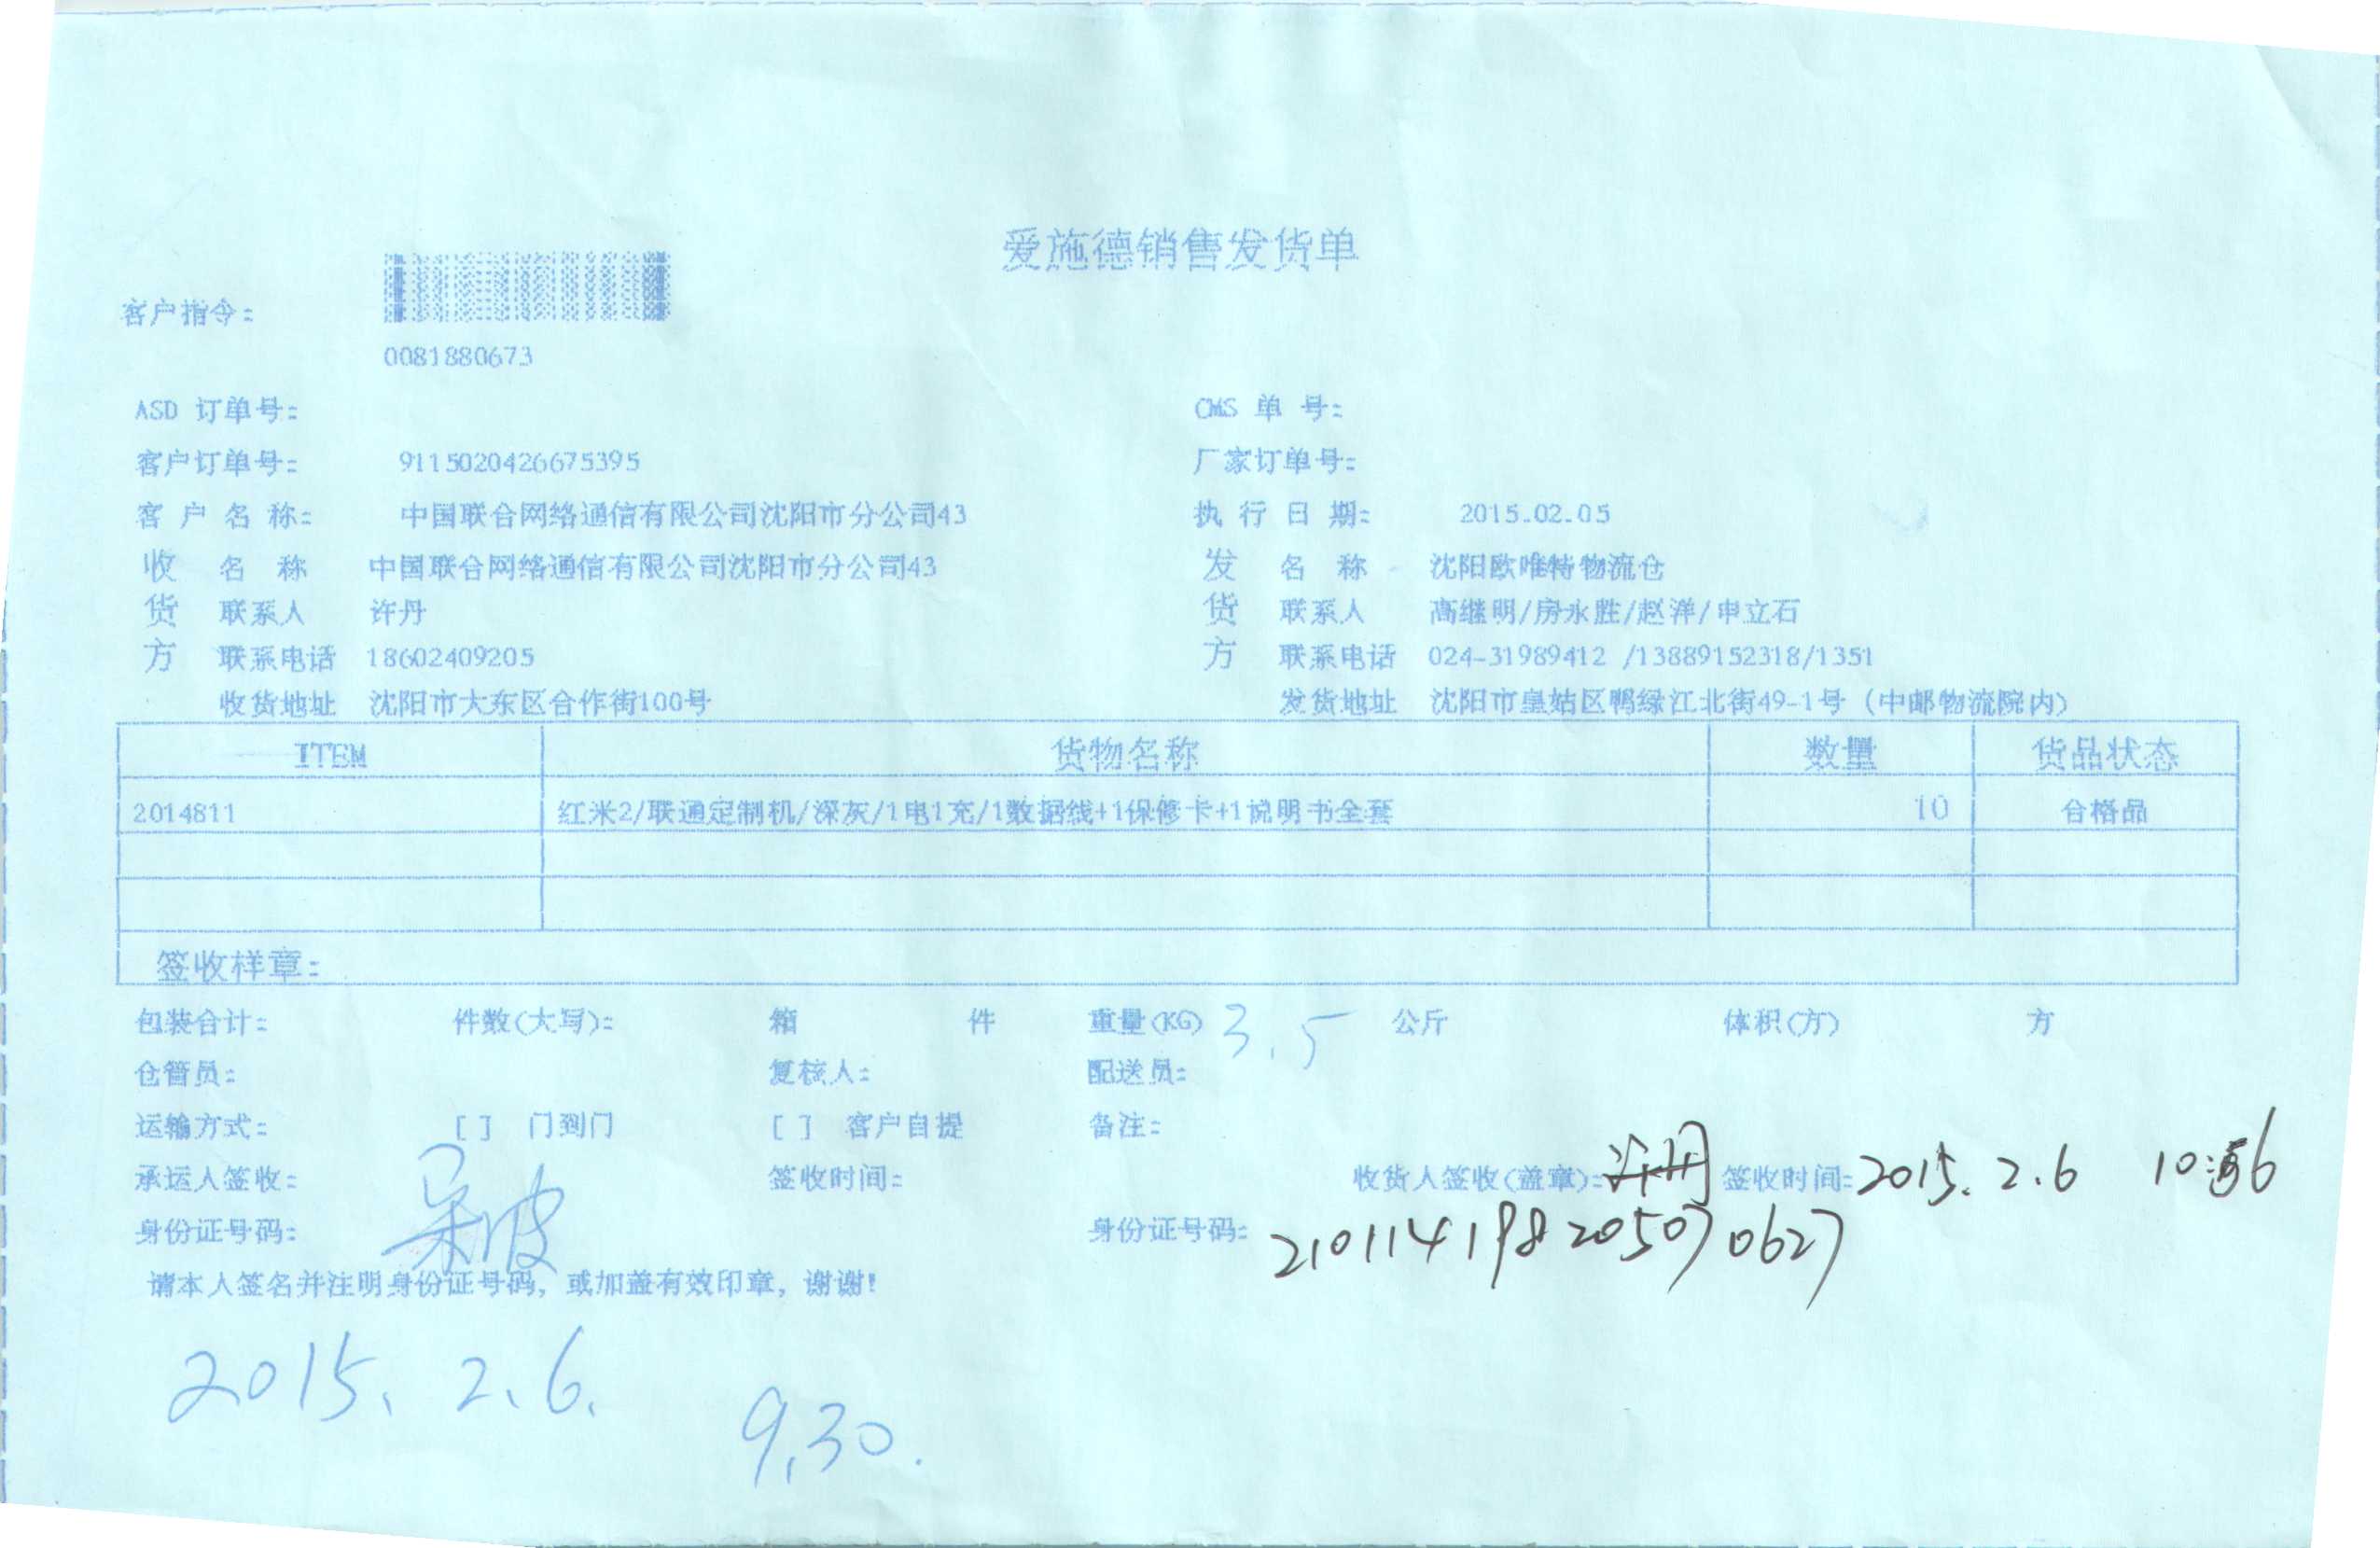 爱施德销售发货单
客户指令：
0081880673
ASD 订单号： CMS 单 号：
客户订单号： 9115020426675395 厂家订单号：
客 户 名 称： 中国联合网络通信有限公司沈阳市分公司43 执 行 日 期： 2015.02.05
收 名 称 中国联合网络通信有限公司沈阳市分公司43 发 名 称 沈阳欧唯特物流仓
货 联系人 许丹 货 联系人 高继明/房永胜/赵洋/申立石
方 联系电话 18602409205 方 联系电话 024-31989412 /13889152318/1351
收货地址 沈阳市大东区合作街100号 发货地址 沈阳市皇姑区鸭绿江北街49-1号（中邮物流院内）
ITEM 货物名称 数量 货品状态
2014811 红米2/联通定制机/深灰/1电1充/1数据线+1保修卡+1说明书全套 10 合格品
签收样章：
包装合计： 件数(大写)： 箱 件 重量(KG) 3.5 公斤 体积(方) 方
仓管员： 复核人： 配送员：
运输方式： [ ] 门到门 [ ] 客户自提 备注：
承运人签收： 签收时间： 收货人签收(盖章)：许丹 签收时间：2015.2.6 10:56
身份证号码： 身份证号码：210114198205070627
请本人签名并注明身份证号码，或加盖有效印章，谢谢！
2015.2.6.
9.30.